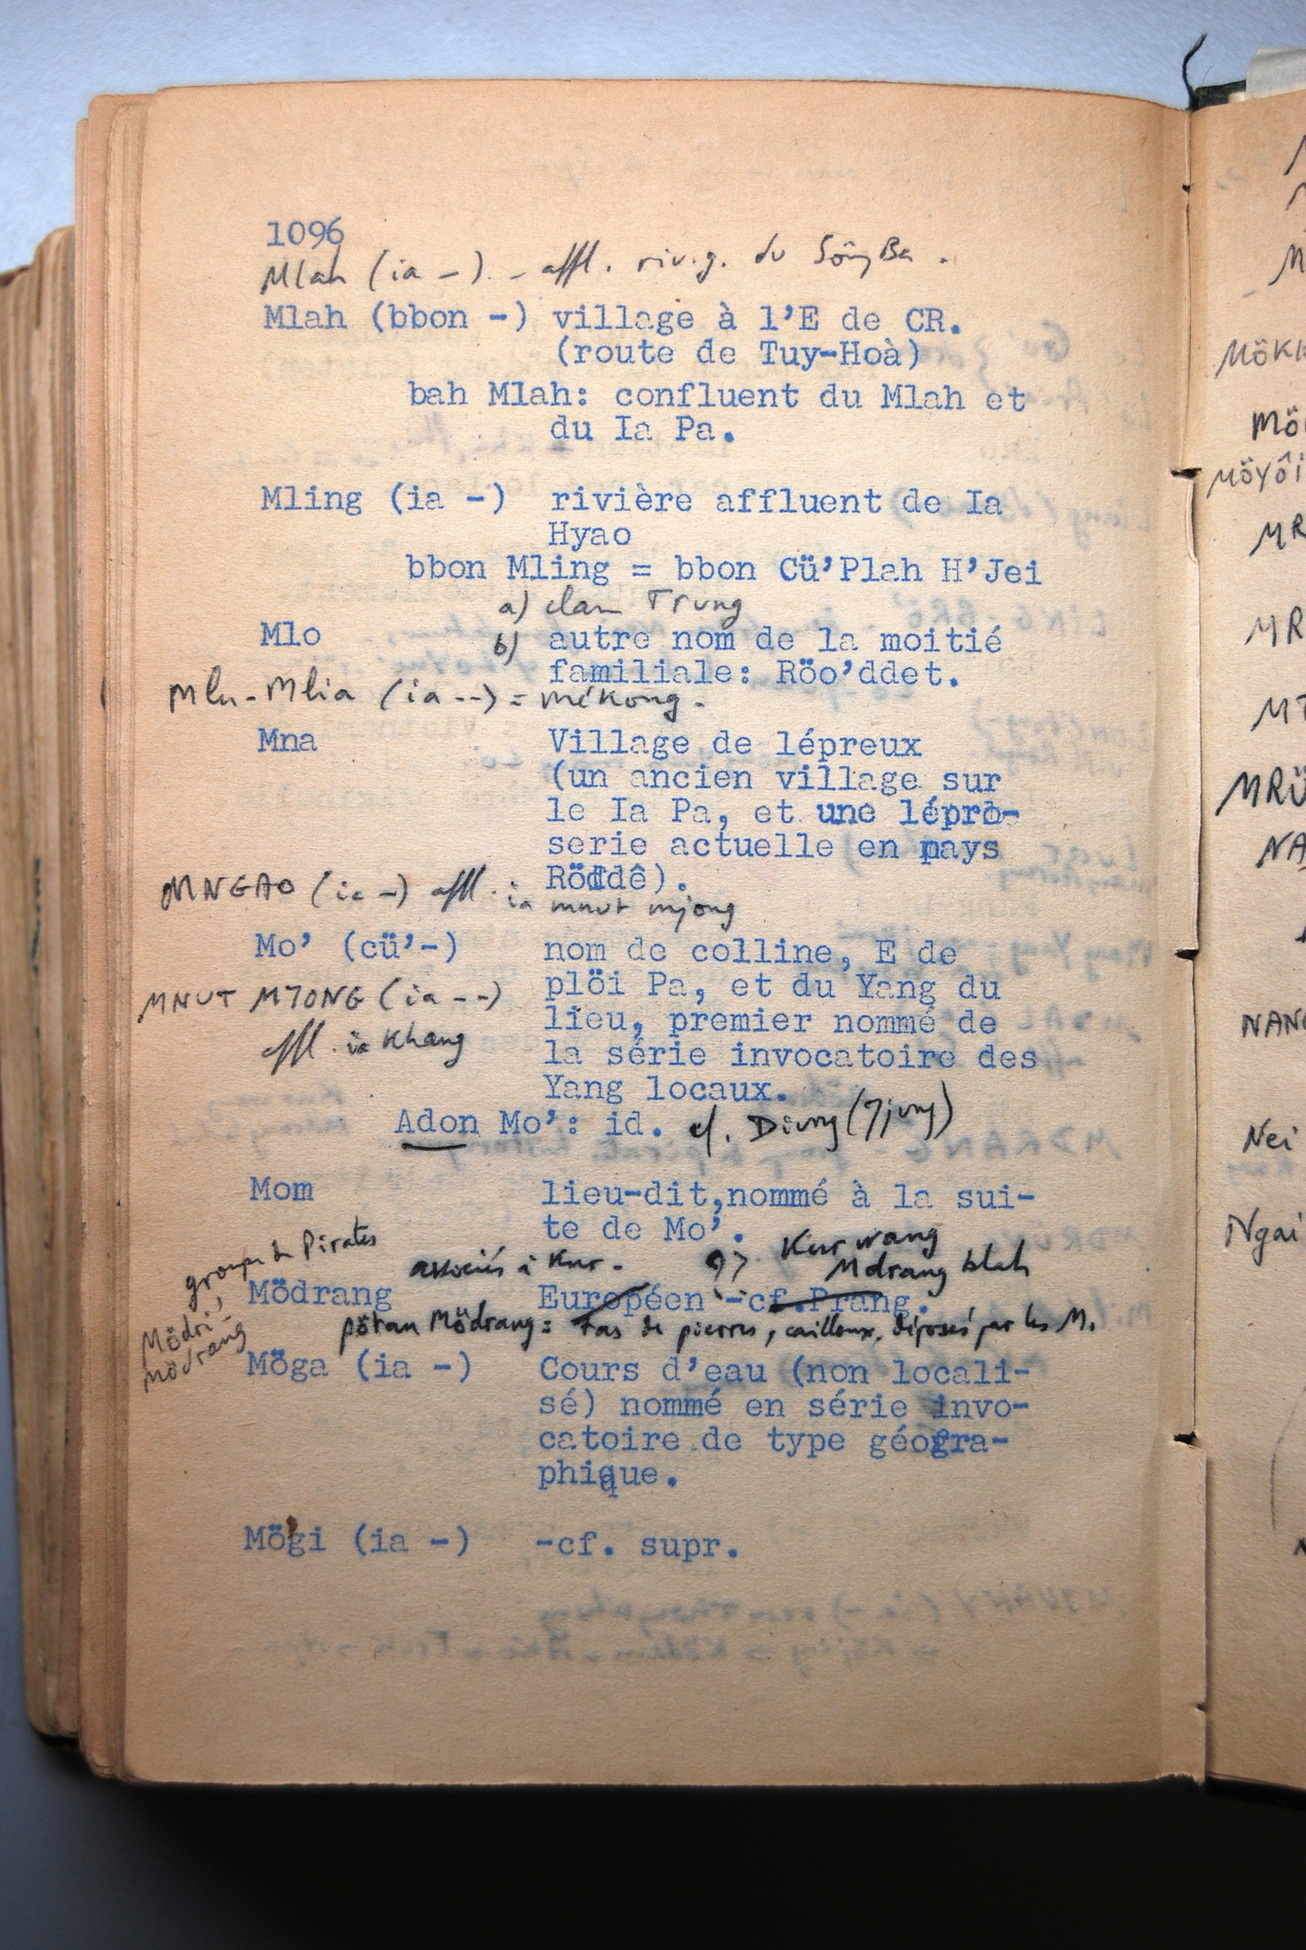 1096
Mlah (ia -) - affl. riv. g. du Sông Ba.
Mlah (bbon -) village à l'E de CR.
(route de Tuy-Hoà)
bah Mlah: confluent du Mlah et
du Ia Pa.
Mling (ia -) rivière affluent de Ia
Hyao
bbon Mling = bbon Cü'Plah H'Jei
a) clan Trung
Mlo b) autre nom de la moitié
familiale: Röo'ddet.
Mlu-Mlia (ia --) = Mékong.
Mna Village de lépreux
(un ancien village sur
le Ia Pa, et une lépro-
serie actuelle en pays
Röddê).
MNGAO (ia -) affl. ia mnut mjong
Mo' (cü'-) nom de colline, E de
plöi Pa, et du Yang du
MNUT MJONG (ia --)
lieu, premier nommé de
affl. ia Khang
la série invocatoire des
Yang locaux.
Adon Mo': id. cf. Djung (Jjung)
Mom lieu-dit,nommé à la sui-
te de Mo'.
groupe de Pirates
associés à Kur. - Kur wang
Mdrang blah
Mödrang Européen -cf.Prang.
Mödri-
mödrang
pötan Mödrang = tas de pierres, cailloux, déposés par les M.
Möga (ia -) Cours d'eau (non locali-
sé) nommé en série invo-
catoire de type géogra-
phique.
Mögi (ia -) -cf. supr.
MÖKK
MÖYÔI
MR
MR
MRÜ
NA
NANG
Nei
Ngai